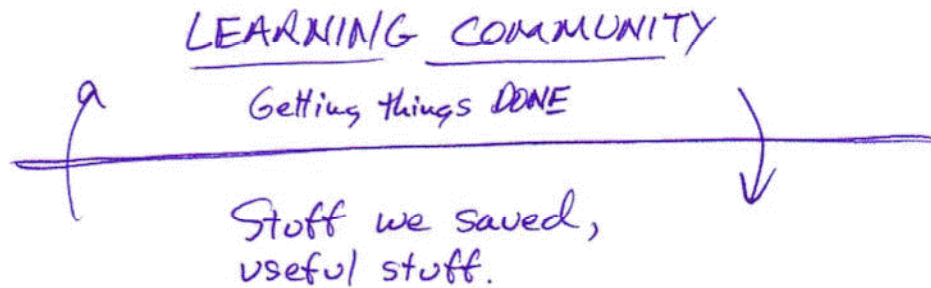 LEARNING COMMUNITY
Getting things DONE
Stuff we saved,
useful stuff.